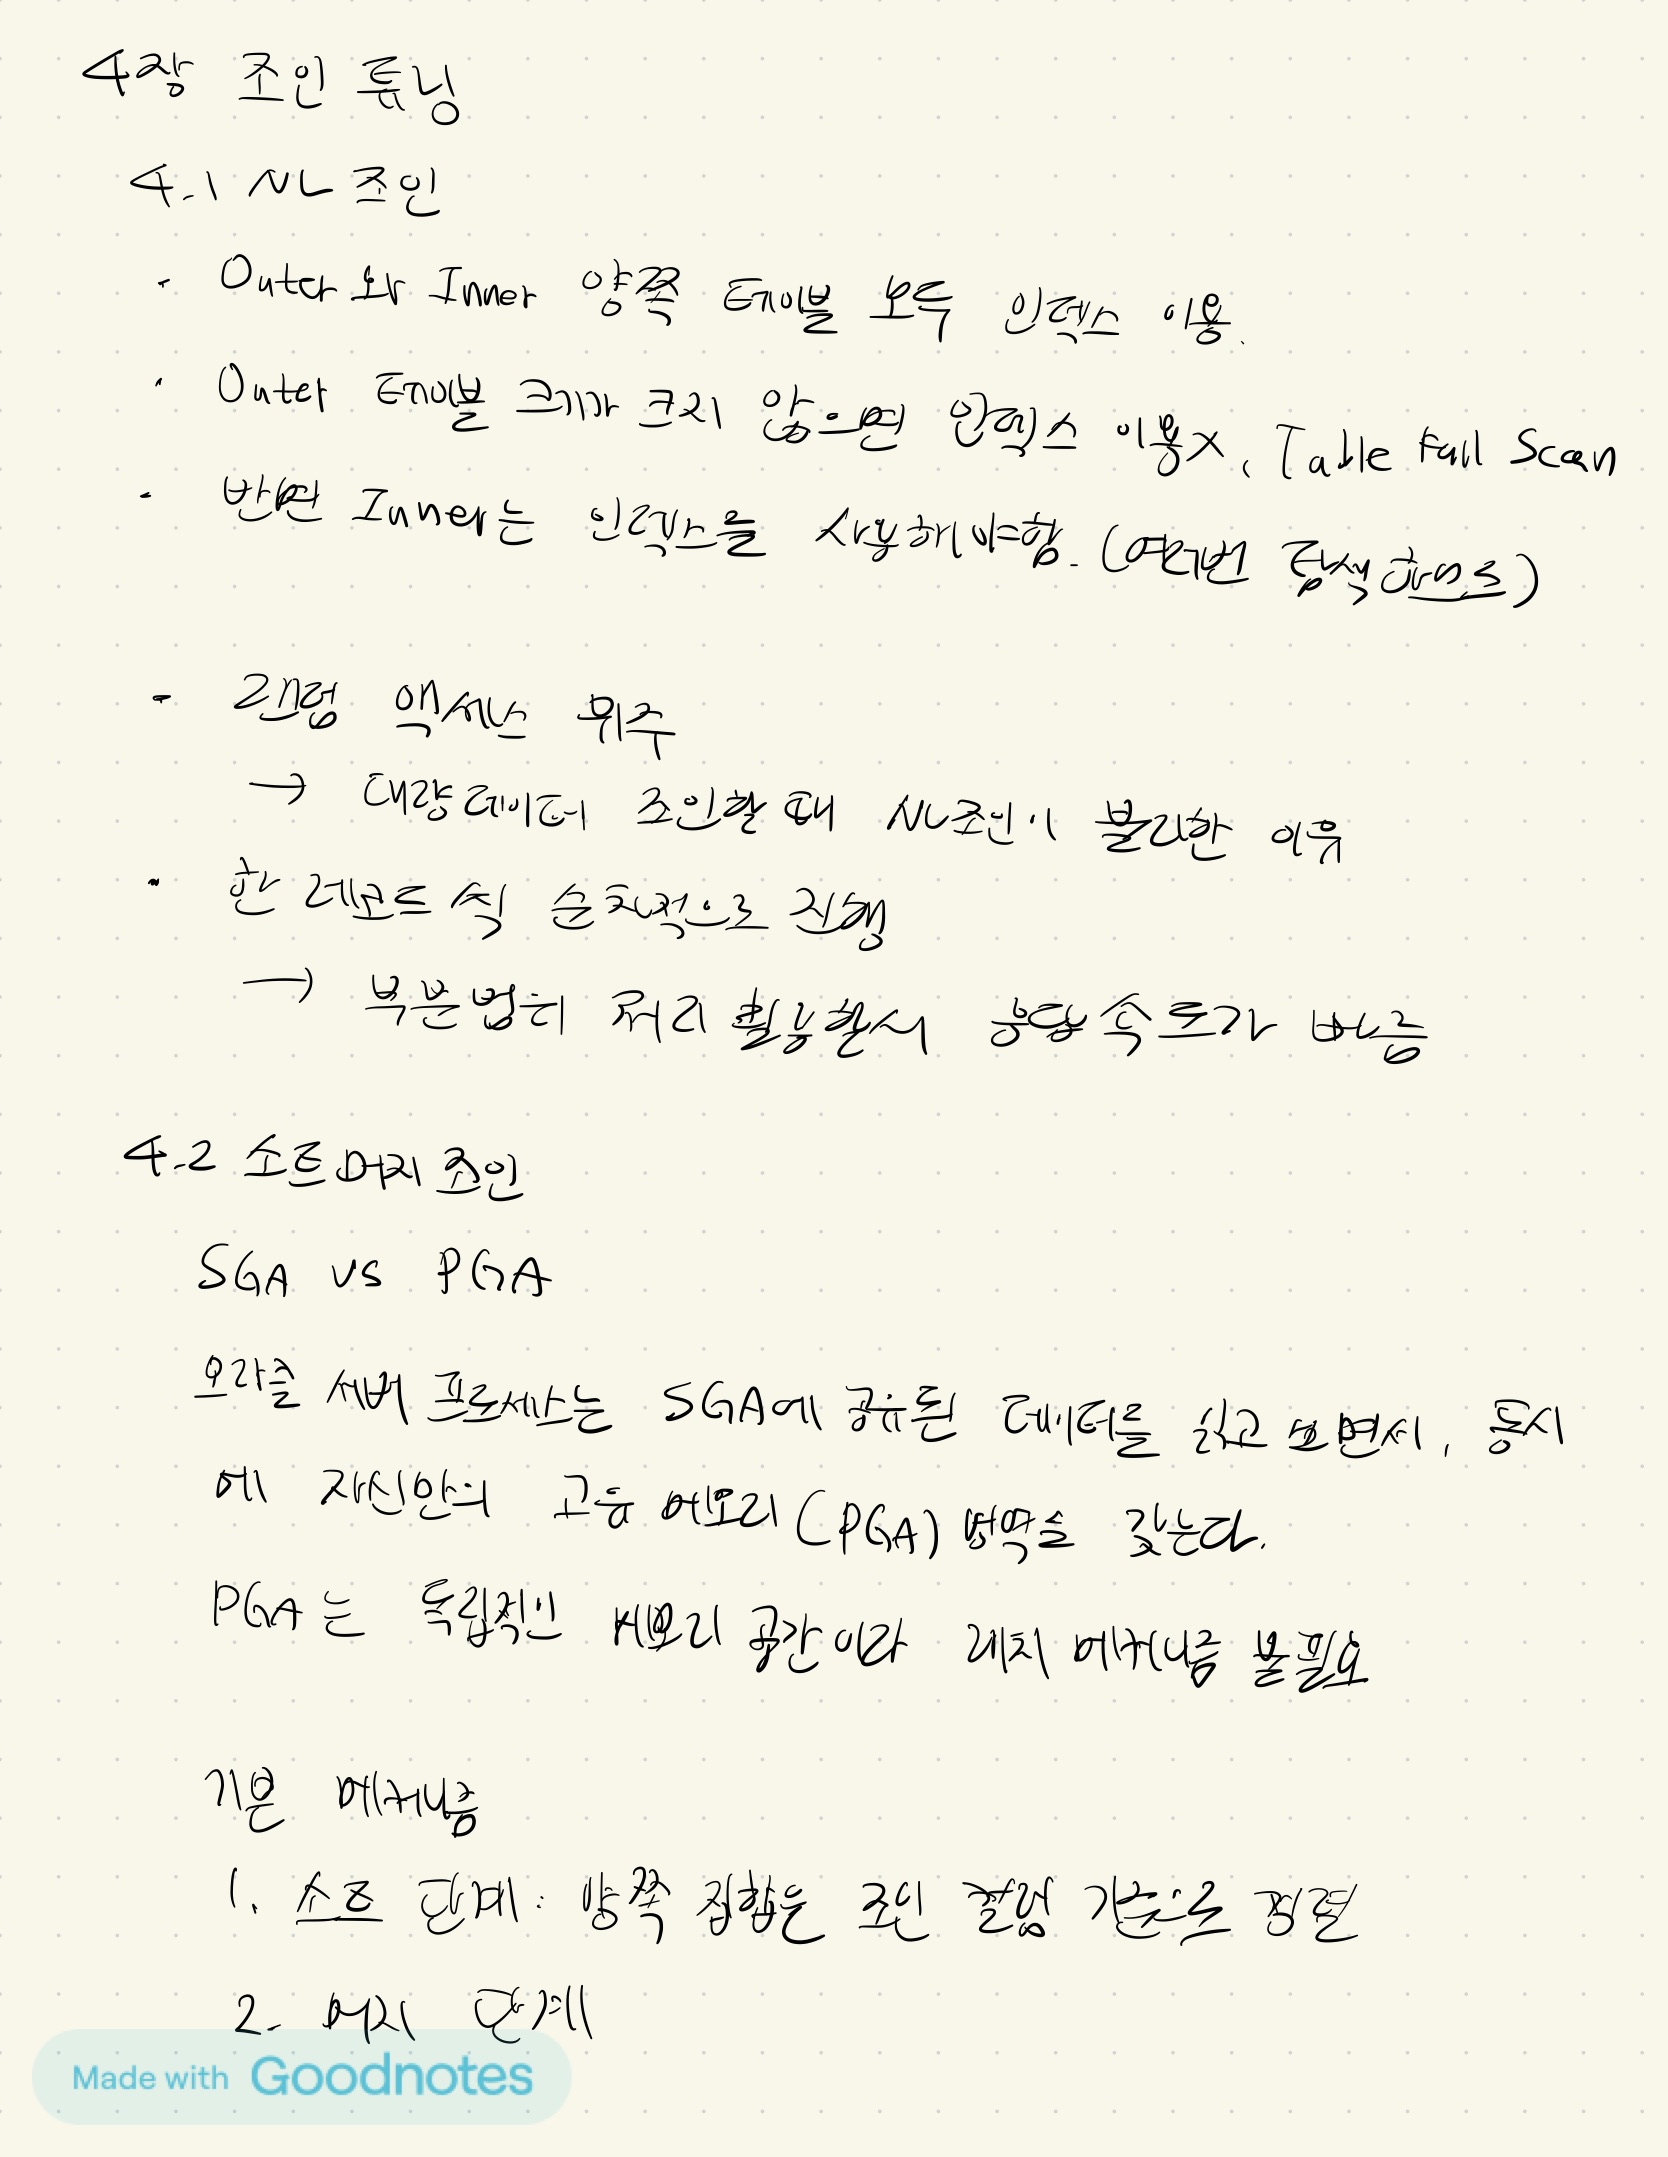 4장 조인 튜닝
4.1 NL 조인
· Outer와 Inner 양쪽 테이블 모두 인덱스 이용.
· Outer 테이블 크기가 크지 않으면 인덱스 이용X, Table Full Scan
· 반면 Inner는 인덱스를 사용해야함. (여러번 탐색하므로)
- 랜덤 액세스 위주
→ 대량 데이터 조인할 때 NL조인이 불리한 이유
· 한 레코드 씩 순차적으로 진행
→ 부분범위 처리 활용할시 응답 속도가 빠름
4.2 소트 머지 조인
SGA vs PGA
오라클 서버 프로세스는 SGA에 공유된 데이터를 읽고 보면서, 동시
에 자신만의 고유 메모리(PGA) 영역을 갖는다.
PGA는 독립적인 메모리 공간이라 래치 메커니즘 불필요
기본 메커니즘
1. 소트 단계: 양쪽 집합은 조인 컬럼 기준으로 정렬
2. 머지 단계
Made with Goodnotes